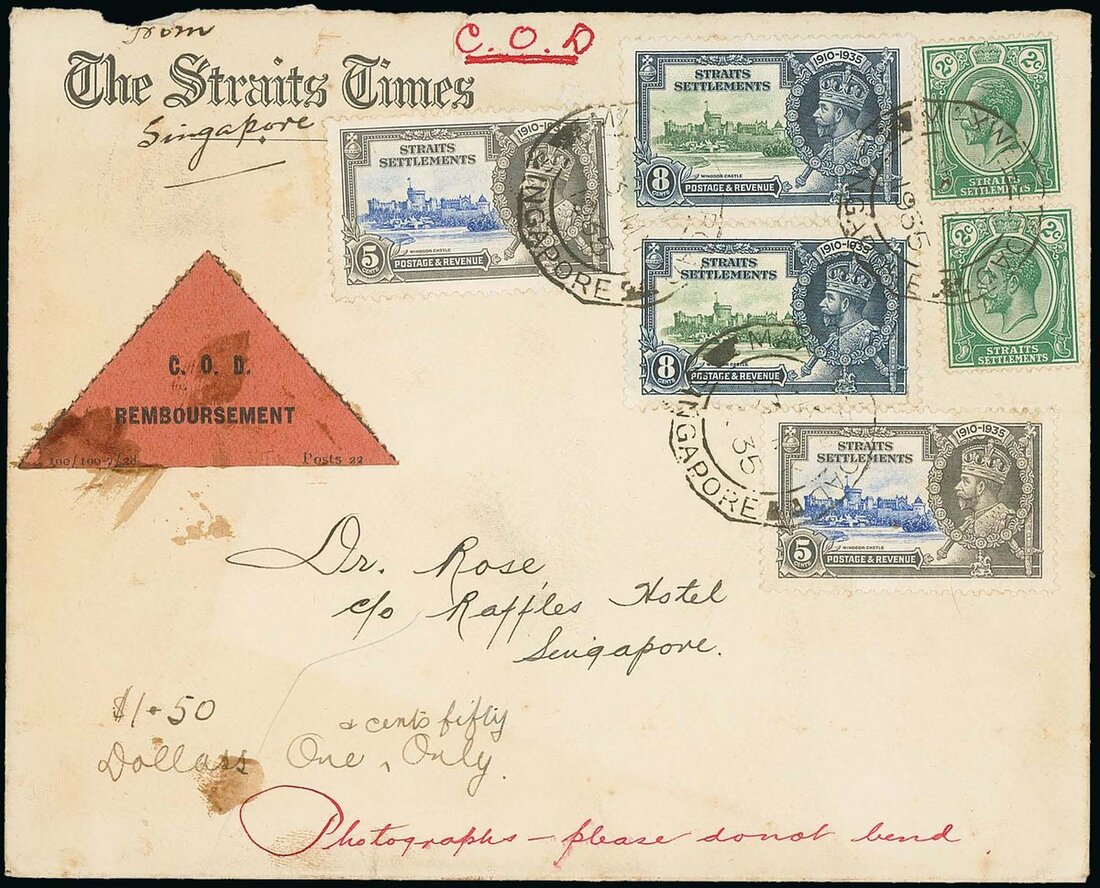 from
The Straits Times
Singapore
C. O. D
1910-1935
STRAITS
SETTLEMENTS
WINDSOR CASTLE
5
CENTS
POSTAGE & REVENUE
1910-1935
STRAITS
SETTLEMENTS
WINDSOR CASTLE
8
CENTS
POSTAGE & REVENUE
2c 2c
STRAITS
SETTLEMENTS
1910-1935
STRAITS
SETTLEMENTS
WINDSOR CASTLE
8
CENTS
POSTAGE & REVENUE
2c 2c
STRAITS
SETTLEMENTS
1910-1935
STRAITS
SETTLEMENTS
WINDSOR CASTLE
5
CENTS
POSTAGE & REVENUE
SINGAPORE
1935
SINGAPORE
35
C. O. D.
REMBOURSEMENT
Posts 22
Dr. Rose,
c/o Raffles Hotel
Singapore.
$1.50
& cents fifty
Dollars One, Only.
Photographs - please do not bend